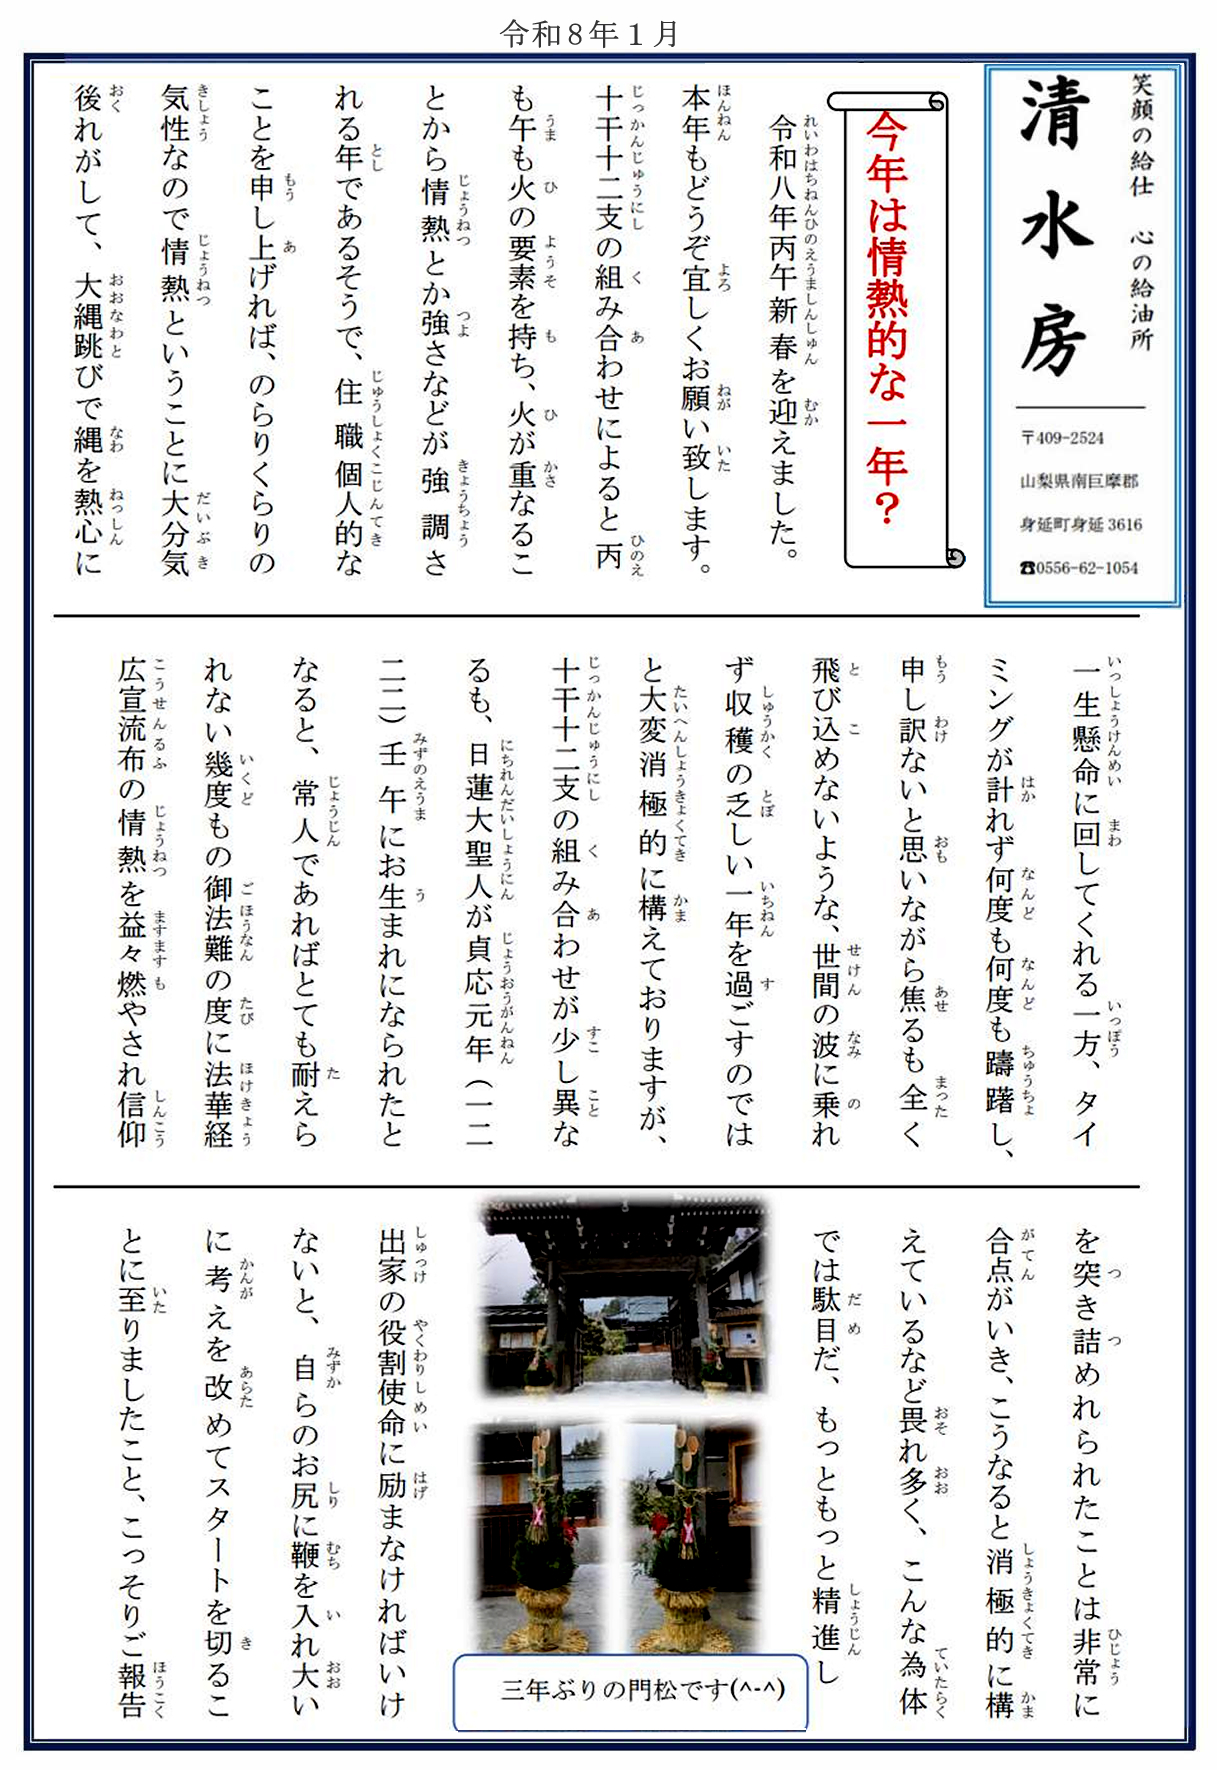 令和８年１月
笑顔の給仕　心の給油所
清水房
〒409-2524
山梨県南巨摩郡
身延町身延 3616
☎0556-62-1054
今年は情熱的な一年？
令和八年丙午新春を迎えました。
本年もどうぞ宜しくお願い致します。
十干十二支の組み合わせによると丙
も午も火の要素を持ち、火が重なるこ
とから情熱とか強さなどが強調さ
れる年であるそうで、住職個人的な
ことを申し上げれば、のらりくらりの
気性なので情熱ということに大分気
後れがして、大縄跳びで縄を熱心に
一生懸命に回してくれる一方、タイ
ミングが計れず何度も何度も躊躇し、
申し訳ないと思いながら焦るも全く
飛び込めないような、世間の波に乗れ
ず収穫の乏しい一年を過ごすのでは
と大変消極的に構えておりますが、
十干十二支の組み合わせが少し異な
るも、日蓮大聖人が貞応元年（一二
二二）壬午にお生まれになられたと
なると、常人であればとても耐えら
れない幾度もの御法難の度に法華経
広宣流布の情熱を益々燃やされ信仰
を突き詰められたことは非常に
合点がいき、こうなると消極的に構
えているなど畏れ多く、こんな為体
では駄目だ、もっともっと精進し
三年ぶりの門松です(^-^)
出家の役割使命に励まなければいけ
ないと、自らのお尻に鞭を入れ大い
に考えを改めてスタートを切るこ
とに至りましたこと、こっそりご報告